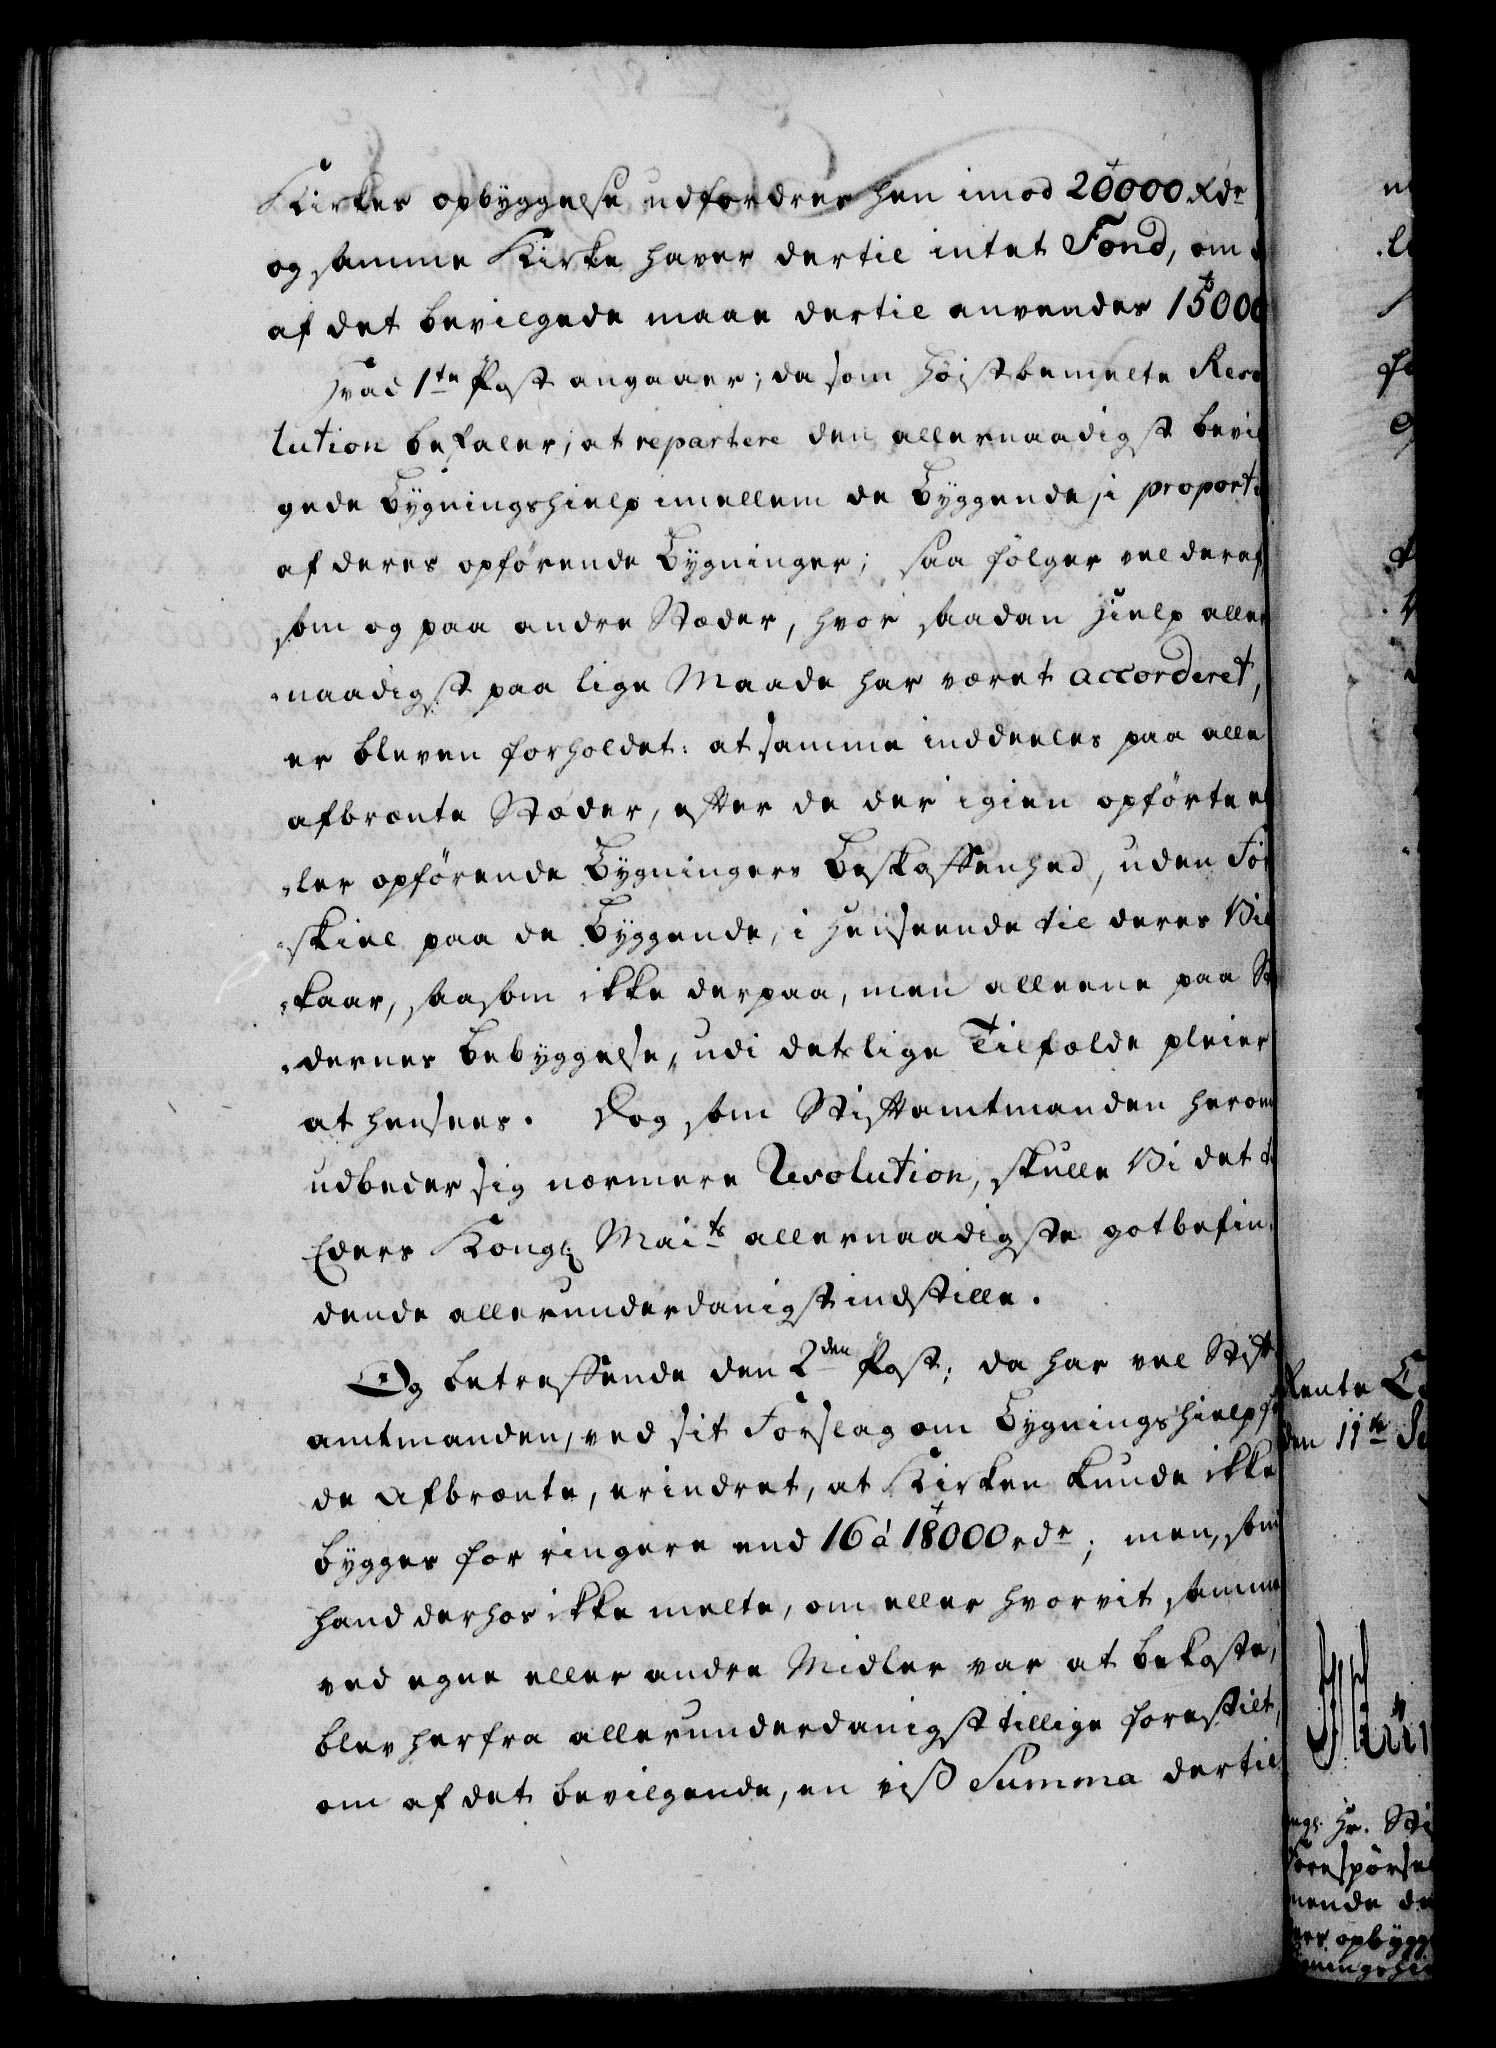 Kirkes opbyggelse udfordres hen imod 20000 Rdr
og samme Kirke haver dertil intet Fond, om
af det bevilgede maae dertil anvendes 15000
Hvad 1te Post angaaer; da som Høistbemelte Reso
lution befaler, at repartere den allernaadigst bevil
gede Bygningshielp imellem de Byggende, i proporti
af deres opförende Bygninger; saa fölger vel deraf,
som og paa andre Stæder, hvor saadan Hielp aller
naadigst paa lige Maade har været accorderet,
er bleven forholdet: at samme inddeeles paa alle
afbrændte Stæder, efter de der igien opförte el
ler opförende Bygningers Beskaffenhed, uden For
skiel paa de Byggende, i Henseende til deres Vil
kaar, saasom ikke derpaa, men alleene paa St
dernes bebyggelse, udi deslige Tilfælde pleier
at henseees. Dog som Stiftamtmanden herom
udbeder sig nærmere Resolution, skulle Vi det
Eders Kongl. Maits allernaadigste gotbefin
dende allerunderdanigst indstille.
Og betreffende den 2den Post; da har vel Stift
amtmanden, ved sit Forslag om Bygningshielp
de Afbrænte, erindret, at Kirken kunde ikke
bygges for ringere end 16 à 18000 rdr; men, som
hand derhos ikke melte, om eller hvorvit samme
ved egne eller andre Midler var at bekoste,
blev herfra allerunderdanigst tillige forestilt,
om af det bevilgende, en viss Summa dertil
Rente
den 11te
Hr.
opbygg